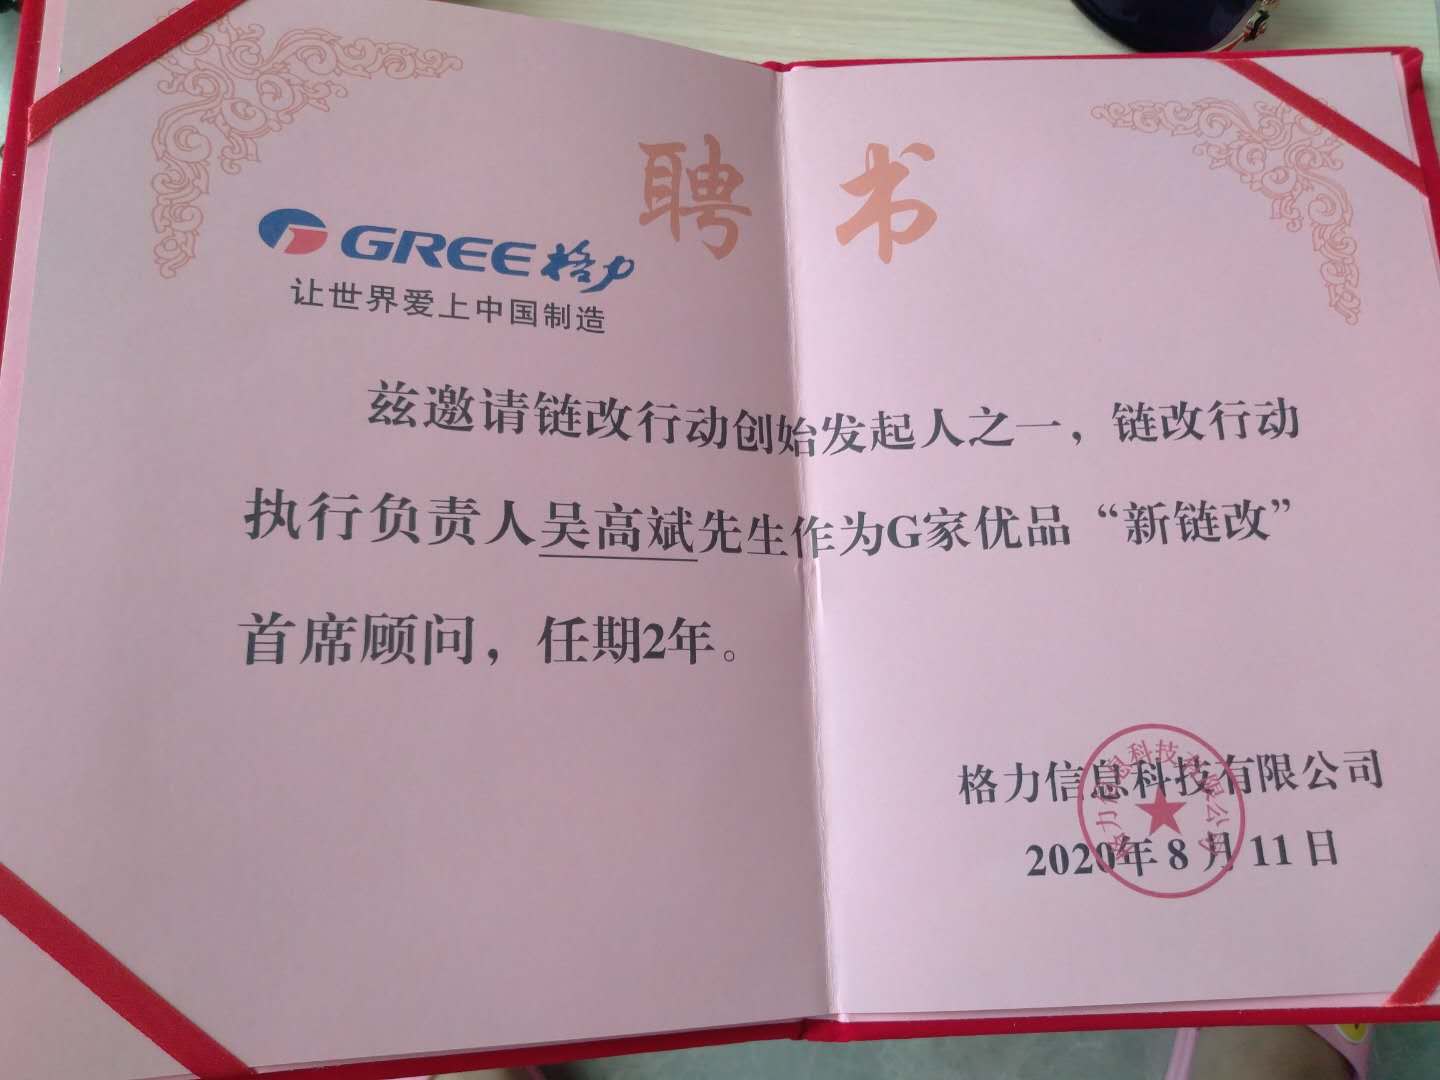 聘书
GREE 格力
让世界爱上中国制造
兹邀请链改行动创始发起人之一，链改行动
执行负责人吴高斌先生作为G家优品“新链改”
首席顾问，任期2年。
格力信息科技有限公司
2020年8月11日
格力信息科技有限公司